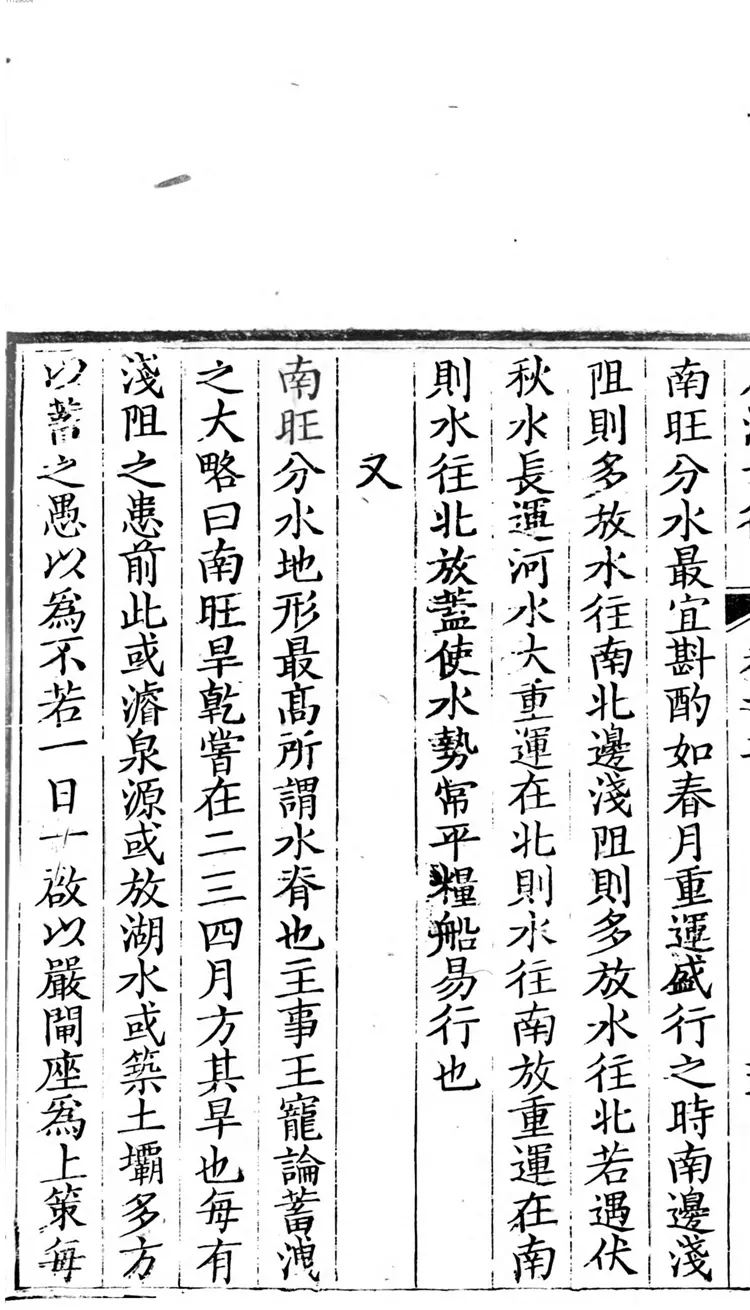 南旺分水最宜斟酌如春月重運盛行之時南邊淺
阻則多放水往南北邊淺阻則多放水往北若遇伏
秋水長運河水大重運在北則水往南放重運在南
則水往北放蓋使水勢常平糧船易行也
又
南旺分水地形最高所謂水脊也主事王寵論蓄洩
之大略曰南旺旱乾嘗在二三四月方其旱也每有
淺阻之患前此或濬泉源或放湖水或築土壩多方
以蓄之愚以為不若一日一啟以嚴閘座為上策每